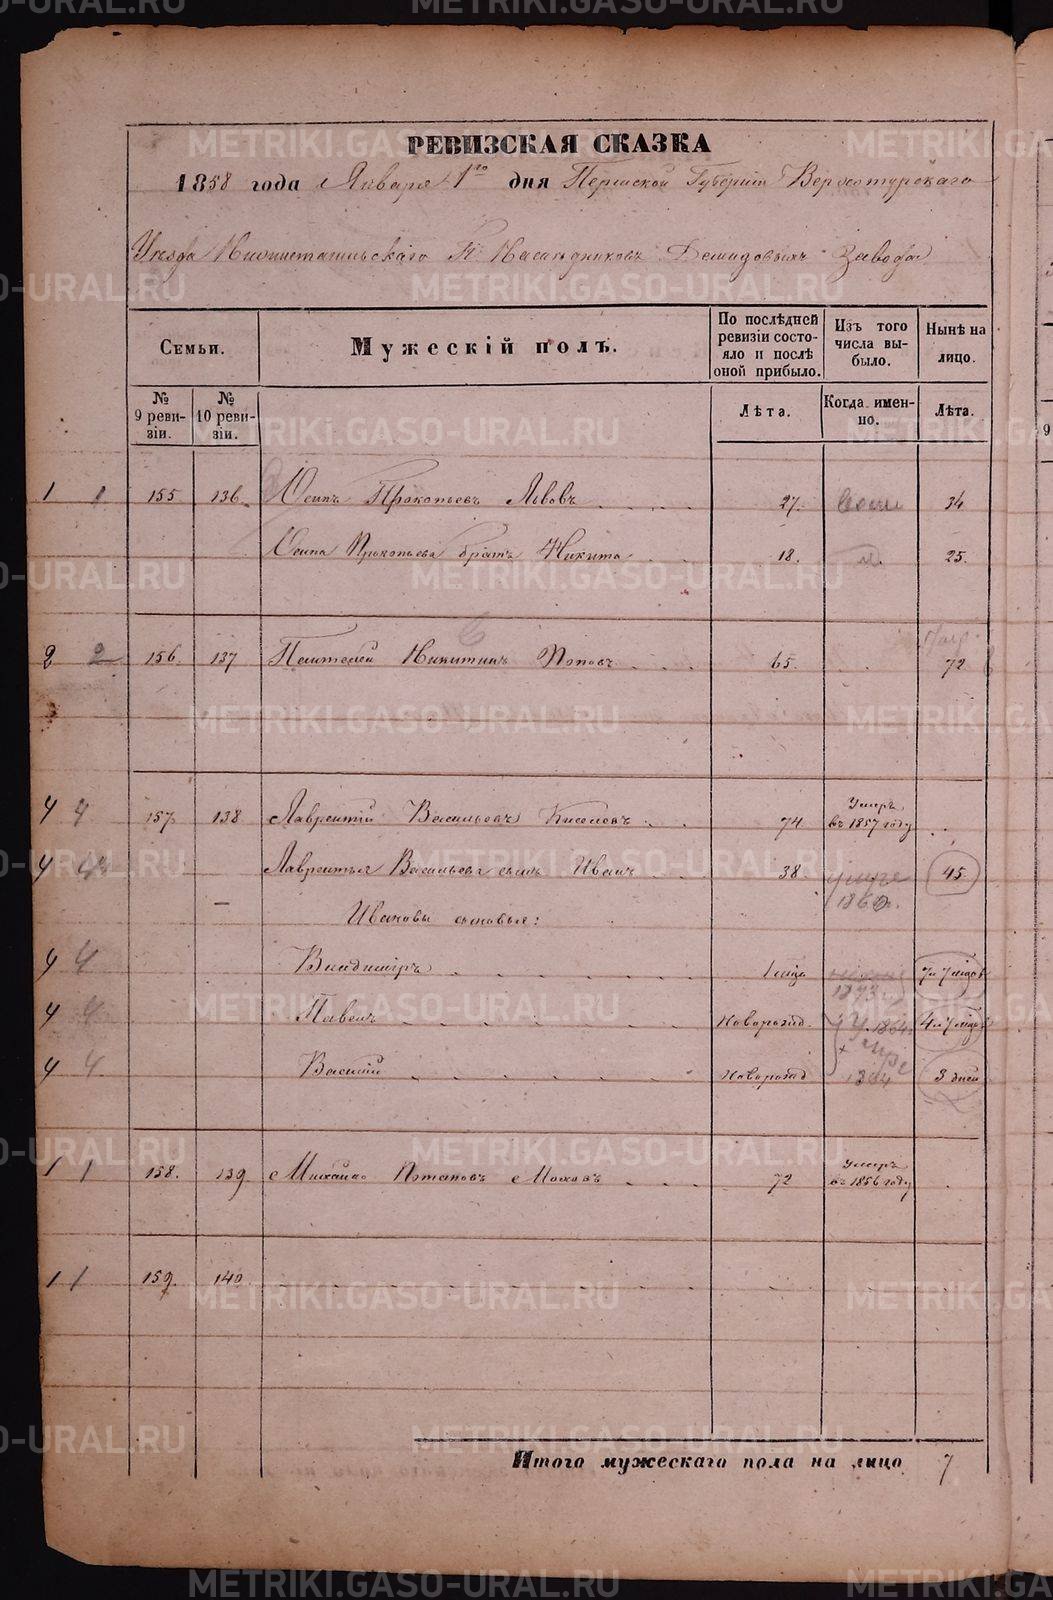 РЕВИЗСКАЯ СКАЗКА
1858 года Января 1го дня Пермской Губерніи Верхотурскаго
Уезда Нижнетагильскаго Г. Наследниковъ Демидовыхъ Завода
Семьи.
Мужескій полъ.
По послѣдней ревизіи состо-
яло и послѣ
оной прибыло.
Изъ того
числа вы-
было.
Нынѣ на
лицо.
№
9 реви-
зіи.
№
10 реви-
зіи.
Лѣта.
Когда имен-
но.
Лѣта.
1 1 155 136. Осипъ Прокопьевъ Львовъ 27. 34
Осипа Прокопьева братъ Никита 18. 25.
2 2 156. 137 Пантелей Никитинъ Поповъ 65. 72
4 4 157. 138 Лаврентій Васильевъ Киселевъ 74 Умеръ
въ 1857 году
4 4 Лаврентья Васильева сынъ Иванъ 38 умеръ 45.
Ивановы сыновья:
4 4 Владиміръ 1 мѣц
1873
4 4 Павелъ Новорожд. У. 1864.
4 4 Василій Новорожд 3 дней
1 1 158. 139 Михайло Потаповъ Моховъ 72 Умеръ
въ 1856 году
1 1 159. 140
Итого мужескаго пола на лицо 7
METRIKI.GASO-URAL.RU